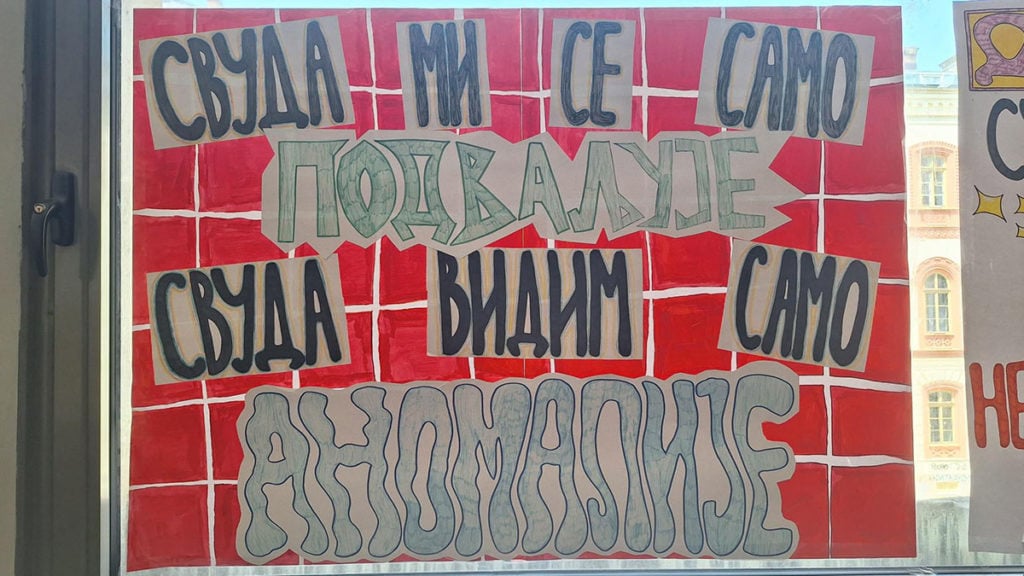 СВУДА МИ СЕ САМО
ПОДВАЉУЈЕ
СВУДА ВИДИМ САМО
АНОМАЛИЈЕ
НЕ